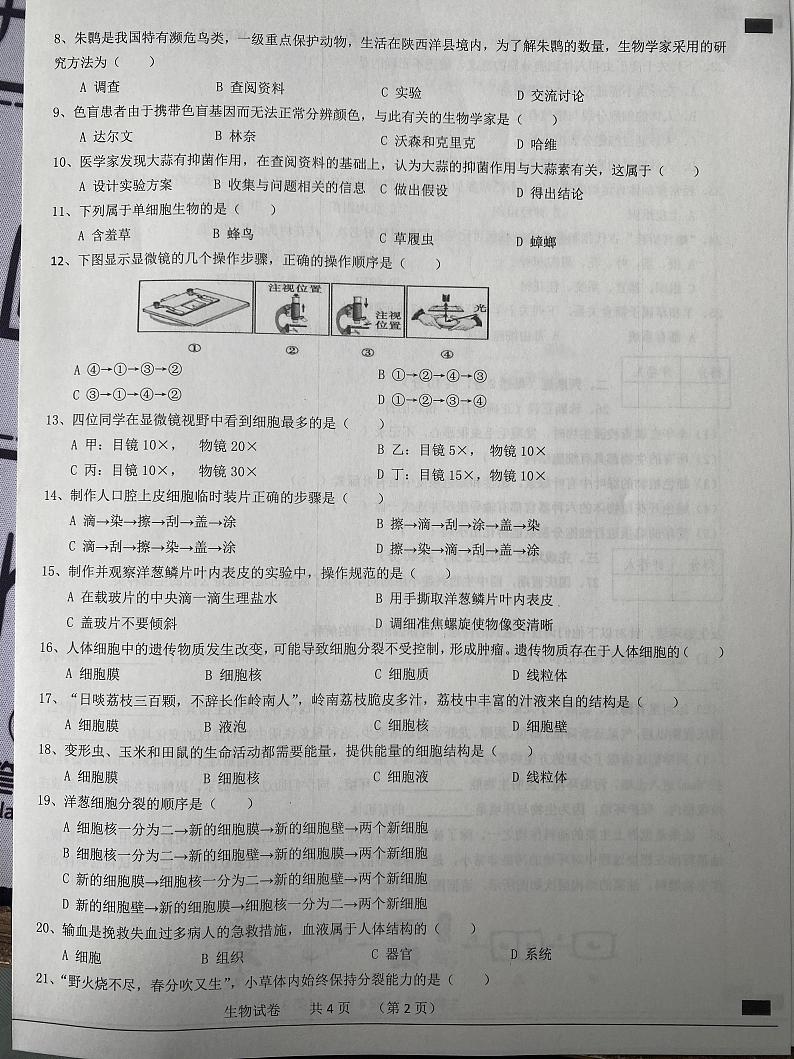 8、朱鹮是我国特有濒危鸟类，一级重点保护动物，生活在陕西洋县境内，为了解朱鹮的数量，生物学家采用的研
究方法为（　　）
A 调查　B 查阅资料　C 实验　D 交流讨论
9、色盲患者由于携带色盲基因而无法正常分辨颜色，与此有关的生物学家是（　　）
A 达尔文　B 林奈　C 沃森和克里克　D 哈维
10、医学家发现大蒜有抑菌作用，在查阅资料的基础上，认为大蒜的抑菌作用与大蒜素有关，这属于（　　）
A 设计实验方案　B 收集与问题相关的信息　C 做出假设　D 得出结论
11、下列属于单细胞生物的是（　　）
A 含羞草　B 蜂鸟　C 草履虫　D 蟑螂
12、下图显示显微镜的几个操作步骤，正确的操作顺序是（　　）
注视位置　注视位置　光
①　②　③　④
A ④→①→③→②　B ①→②→④→③
C ③→①→④→②　D ①→②→③→④
13、四位同学在显微镜视野中看到细胞最多的是（　　）
A 甲：目镜 10×，　物镜 20×　B 乙：目镜 5×，　物镜 10×
C 丙：目镜 10×，　物镜 30×　D 丁：目镜 15×，物镜 10×
14、制作人口腔上皮细胞临时装片正确的步骤是（　　）
A 滴→染→擦→刮→盖→涂　B 擦→滴→刮→涂→盖→染
C 滴→刮→擦→染→盖→涂　D 擦→染→滴→刮→盖→涂
15、制作并观察洋葱鳞片叶内表皮的实验中，操作规范的是（　　）
A 在载玻片的中央滴一滴生理盐水　B 用手撕取洋葱鳞片叶内表皮
C 盖玻片不要倾斜　D 调细准焦螺旋使物像变清晰
16、人体细胞中的遗传物质发生改变，可能导致细胞分裂不受控制，形成肿瘤。遗传物质存在于人体细胞的（　　）
A 细胞膜　B 细胞核　C 细胞质　D 线粒体
17、“日啖荔枝三百颗，不辞长作岭南人”，岭南荔枝脆皮多汁，荔枝中丰富的汁液来自的结构是（　　）
A 细胞膜　B 液泡　C 细胞核　D 细胞壁
18、变形虫、玉米和田鼠的生命活动都需要能量，提供能量的细胞结构是（　　）
A 细胞膜　B 细胞核　C 细胞液　D 线粒体
19、洋葱细胞分裂的顺序是（　　）
A 细胞核一分为二→新的细胞膜→新的细胞壁→两个新细胞
B 细胞核一分为二→新的细胞壁→新的细胞膜→两个新细胞
C 新的细胞膜→细胞核一分为二→新的细胞壁→两个新细胞
D 新的细胞壁→新的细胞膜→细胞核一分为二→两个新细胞
20、输血是挽救失血过多病人的急救措施，血液属于人体结构的（　　）
A 细胞　B 组织　C 器官　D 系统
21、“野火烧不尽，春分吹又生”，小草体内始终保持分裂能力的是（　　）
生物试卷　共 4 页　（第 2 页）